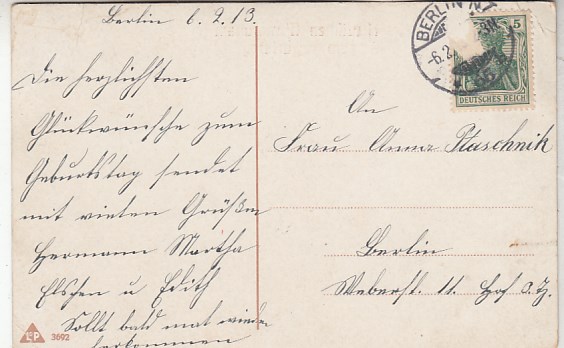 Berlin 6.2.13.
Die herzlichsten
Glückwünsche zum
Geburtstag sendet
mit vielen Grüßen
Hermann Martha
u Edith
Sollt bald mal wieder
herkommen
BERLIN N
-6.2.
5
DEUTSCHES REICH
An
Frau Anna Ptaschnik
Berlin
Weberst. 11. Hof
L&P
3692